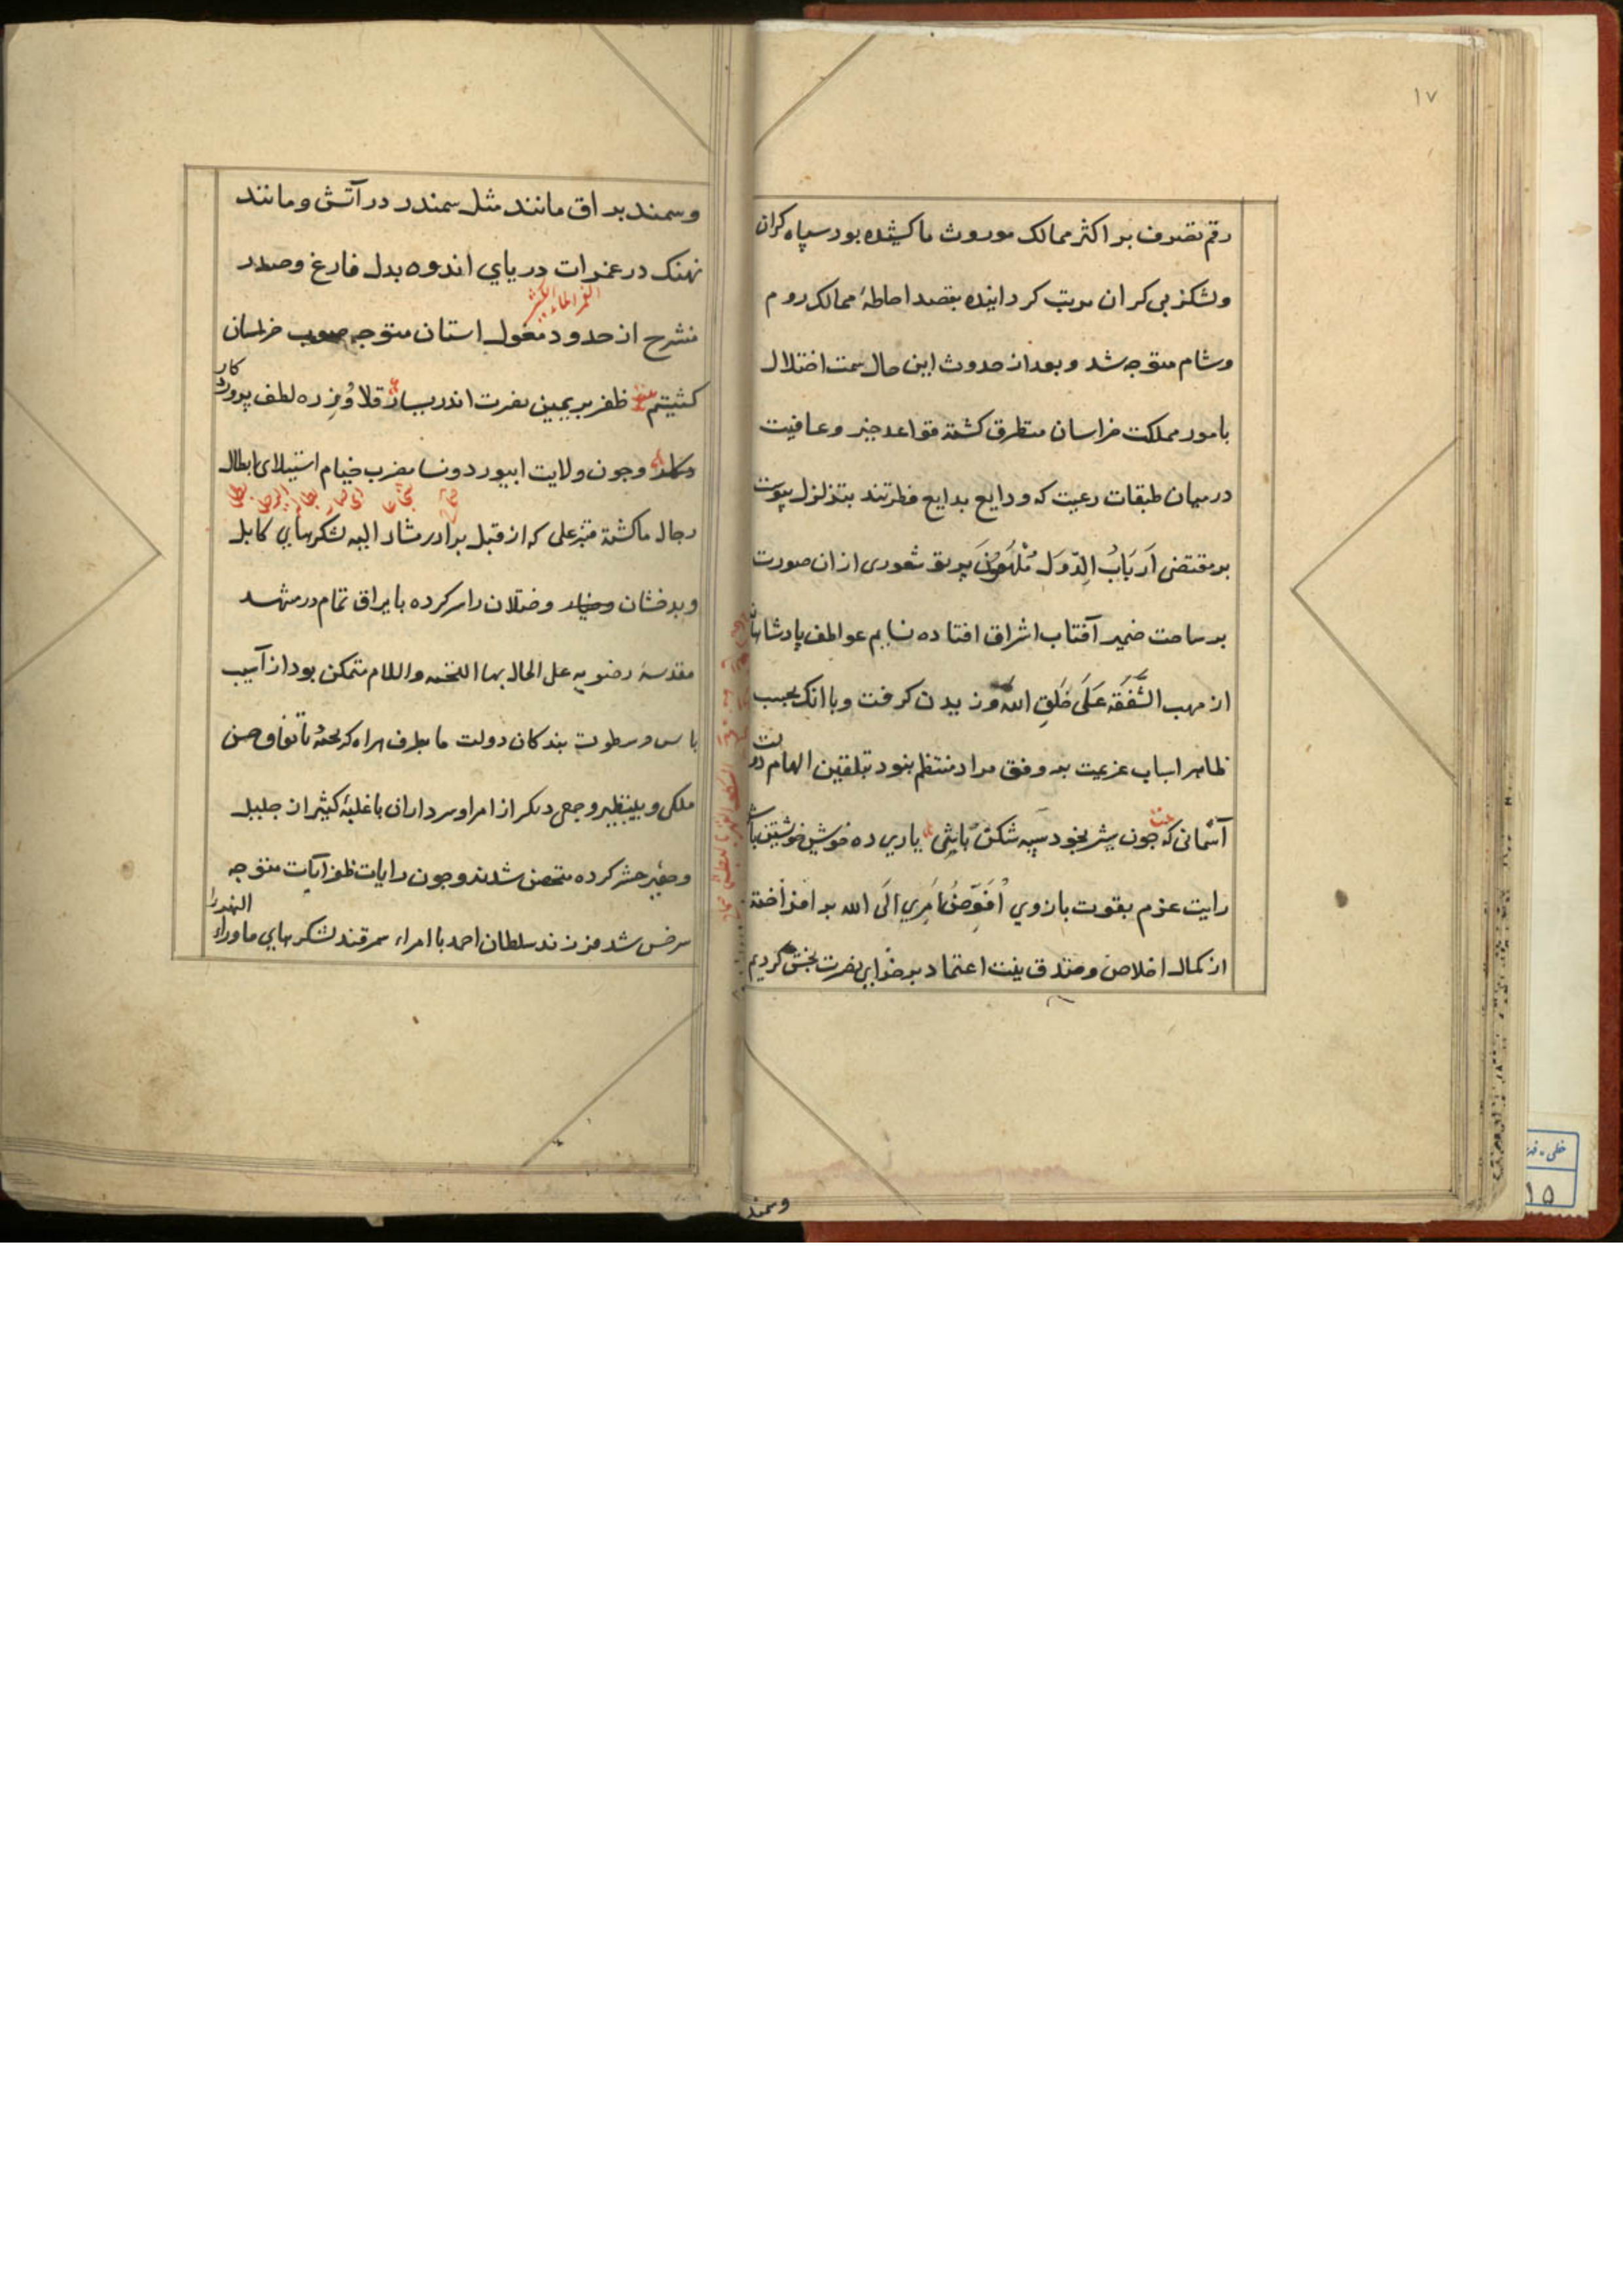 ۱۷
رقم تصرف بر اکثر ممالک موروث ما کشیده بود سپاه کران
ولشکر بی کران مرتب کردانیده بقصد احاطهٔ ممالک روم
وشام متوجه شد و بعد از حدوث این حال سمت اختلال
بامور مملکت خراسان متطرق کشته قواعد خیر وعافیت
در میان طبقات رعیت که ودایع بدایع فطرتند بتزلزل پیوست
بر مقتضی اَربَابُ الدّوَل مُلْهَمُونَ پرتو شعوری از ان صورت
بر ساحت ضمیر آفتاب اشراق افتاده نسایم عواطف پادشاهانه
از مهب الشَّفَقَة عَلَی خَلقِ الله وزیدن کرفت وبا انک بحسب
ظاهر اسباب عزیمت بر وفق مراد منتظم نبود بتلقین الهام دولت
آسمانی که چون شیر بخود سپه شکن باشی یاری ده خویش خویشتن باش
رایت عزم بقوت بازوی اُفَوِّضُ اَمرِی اِلَی الله بر افراخته
از کمال اخلاص وصدق نیت اعتماد بر خدای نصرت بخش کردیم
وسمند
وسمند براق مانند مثل سمندر در آتش ومانند
نهنک در غمرات دریای اندوه بدل فارغ وصدر
الغمر الماء الکثیر
منشرح از حدود مغول استان متوجه صوب خراسان
کشتیم ظفر بر یمین نصرت اندر یسار قلاوز ره لطف پرورد
کار
وچون ولایت ابیورد ونسا مضرب خیام استیلای ابطال
رجال ما کشته قنبر علی که از قبل برادر مشار الیه لشکرهای کابل
وبدخشان وختلان را سر کرده با یراق تمام در مشهد
مقدسهٔ رضویه علی الحال بها التحیه والسلام متمکن بود از آسیب
باس وسطوت بندکان دولت ما بطرف هراه کریخته باتفاق حسن
ملکی وبینظیر وجمعی دیکر از امرا وسرداران با غلبهٔ کثیر از جلیل
وحقیر حشر کرده متحصن شدند وچون رایات ظفر آیات متوجه
سرخس شد فرزند سلطان احمد با امراء سمرقند لشکرهای ماوراء
النهر را
۱۵